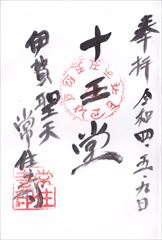 奉拝 令和四・五・九日
十王堂
伊賀聖天
常住寺